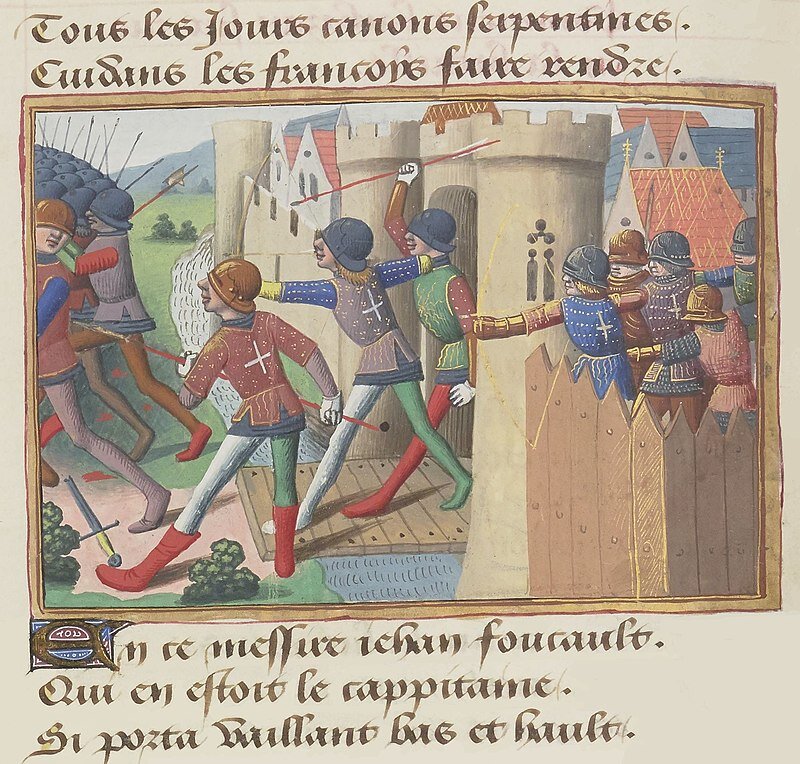 Tous les Jours canons serpentines.
Cuidans les francoys faire rendre.
En ce messire iehan foucault.
Qui en estoit le cappitaine.
Si porta vaillant bas et hault.